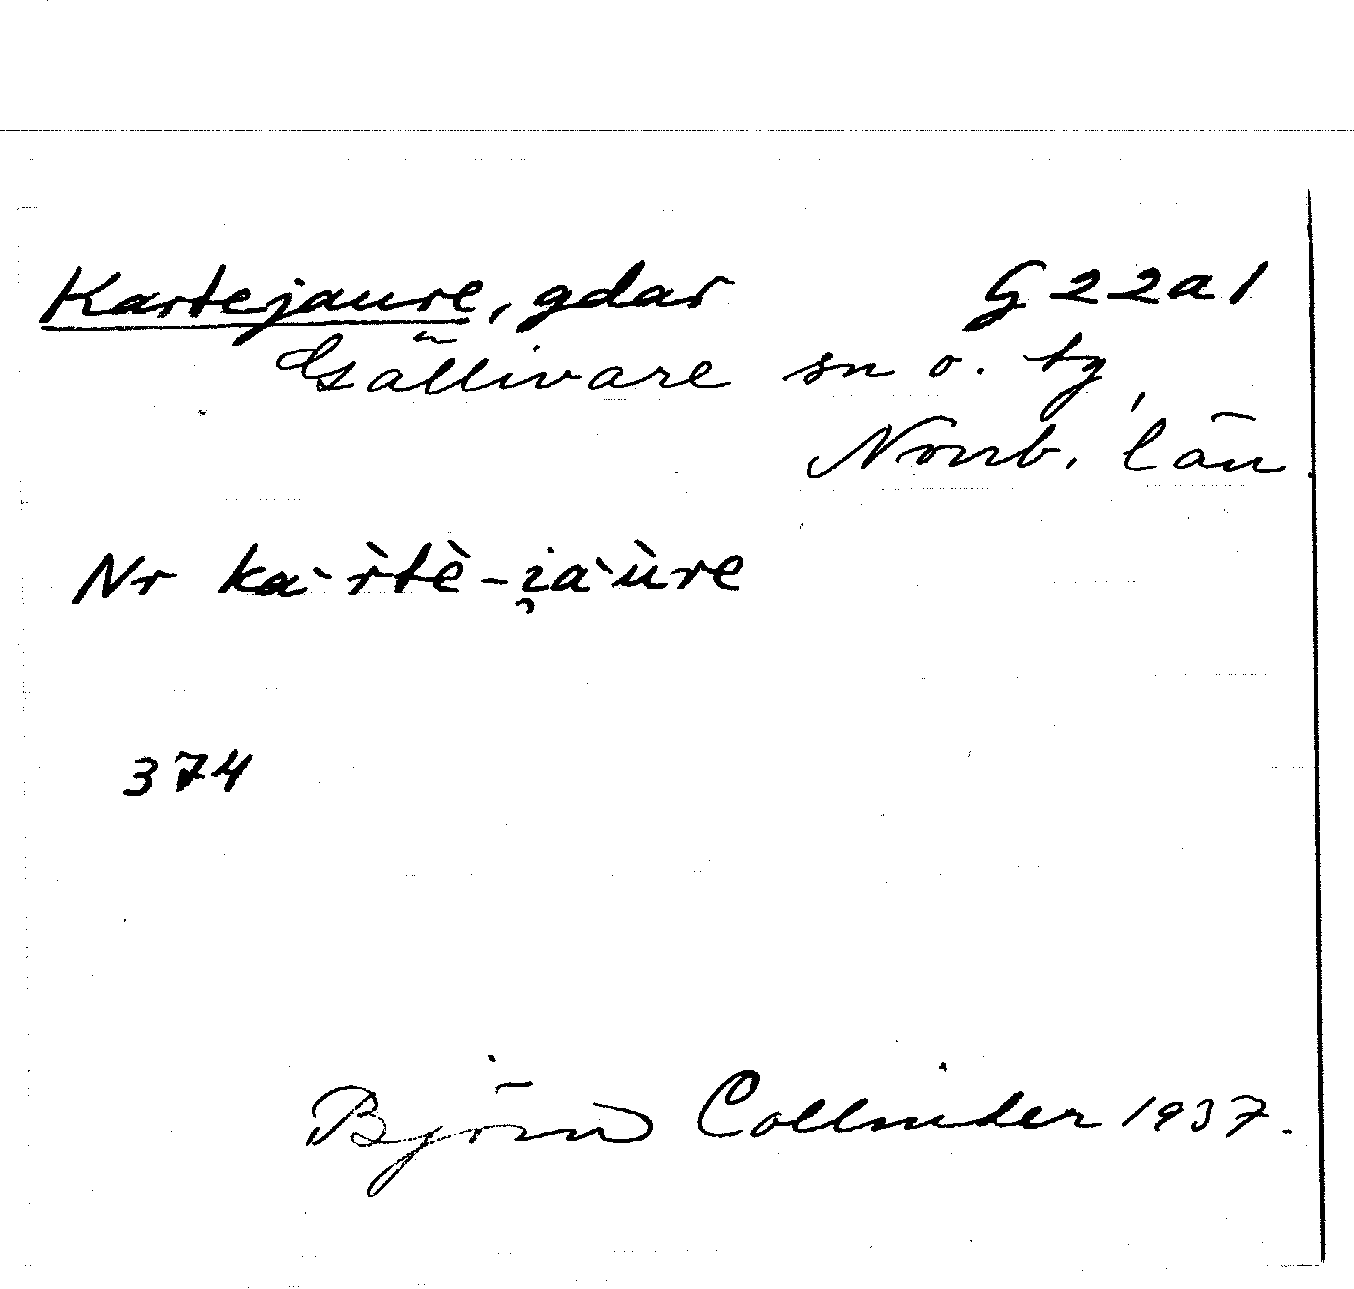 Kartejaure, gdar G22a1
Gällivare sn o. tg,
Norrb. län.
Nr ka`r̀tè-i̯a`ùre
374
Björn Collinder 1937.